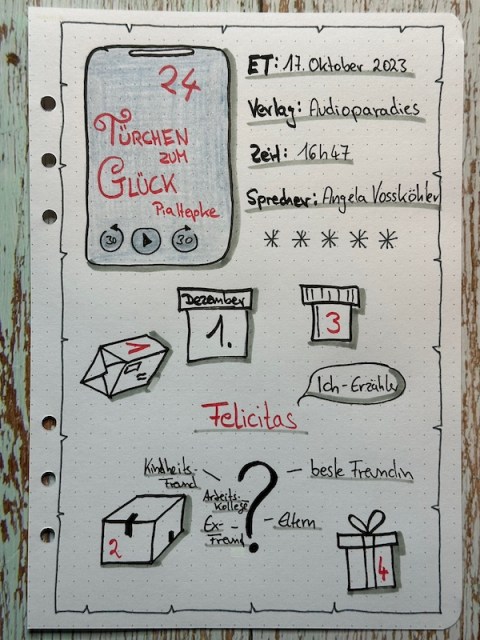 24
TÜRCHEN
ZUM
GLÜCK
Pia Hepke
30 30
ET: 17. Oktober 2023
Verlag: Audioparadies
Zeit: 16h47
Sprecher: Angela Vossköhler
Dezember
1.
3
Ich-Erzähler
Felicitas
Kindheits-
Freund
Arbeits-
kollege
Ex-
Freund
? 
beste Freundin
Eltern
2
4